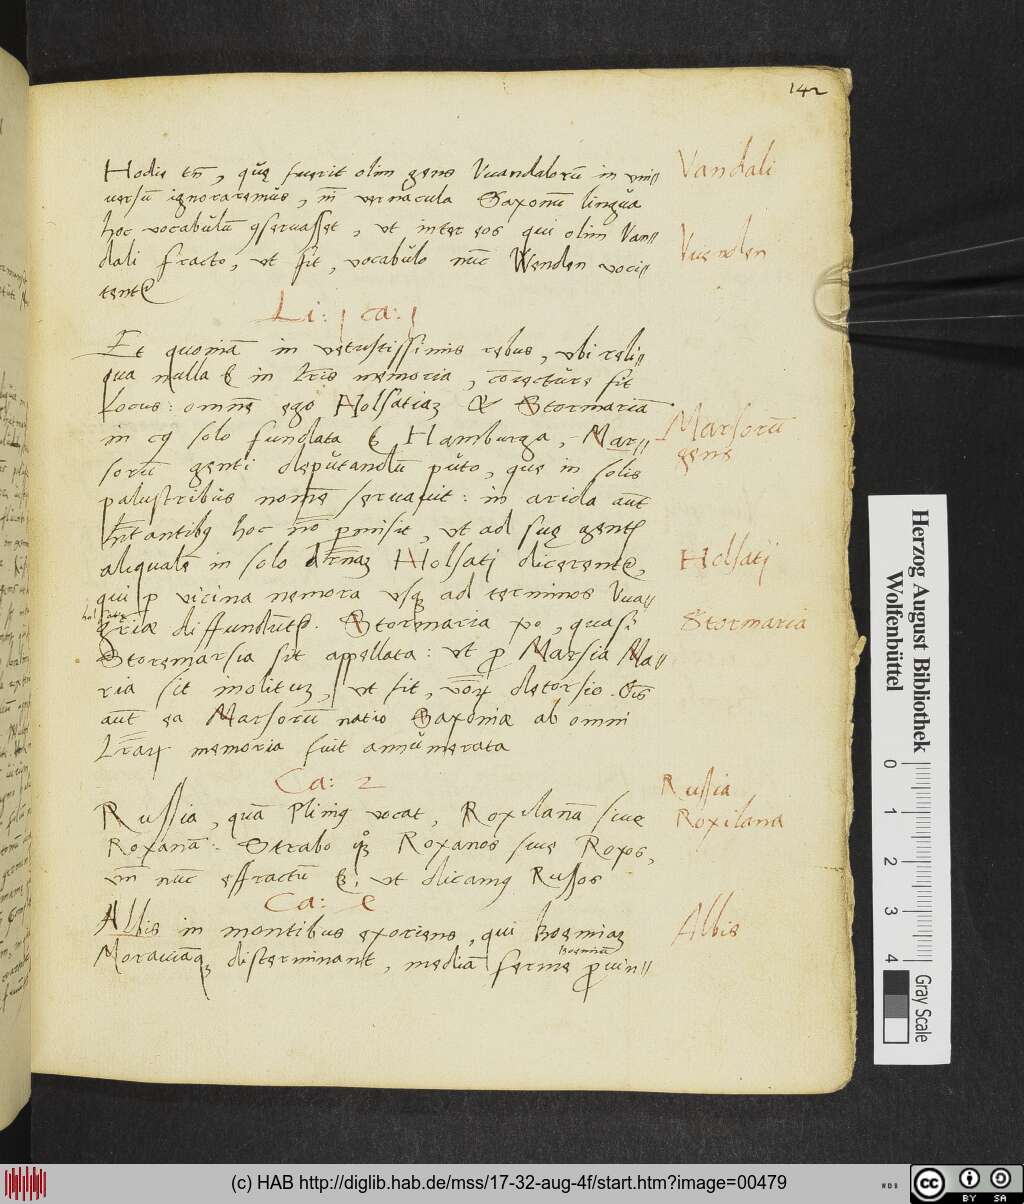 142
Hodie tñ, que fuerit olim gens Vuandalorũ in vni〃
uersũ ignoraremus, ni vernacula Saxonũ lingua
hoc vocabulũ ꝯseruasset, vt inter eos qui olim Van〃
dali fracto, vt fit, vocabulo nũc Wenden voci〃
Vandali
Vuenden
Li: j ca: j
Et quoniã in vetustissimis rebus, vbi reli〃
qua nulla ē in lr̃is memoria, coniecturę sit
locus: omnẽ ego Holsatiaꝫ & Stormariã
in cꝰ solo fundata ē Hamburga, Mar〃
sorũ genti deputandũ puto, quę in solis
palustribus nomẽ seruauit: in arida aũt
hr̃tantibꝰ hoc nõ pmisit, vt ad suę
aliqualẽ in solo Holsatj dicerentr̃,
qui ꝓ vicina nemora vsqꝫ ad terminos Vua〃
holsatię
griæ diffundũtr̃. Stormaria ꝟo, quasi
Storemarsia sit appellata: vt ꝓ Marsia Ma〃
ria sit inolituꝫ, vt fit, detorsio.
aũt ea Marsorũ natio Saxoniæ ab omni
lr̃aꝝ memoria fuit annumerata
Marsorũ
gens
Holsatij
Stormaria
Ca: 2
Russia, quã Plinius vocat, Roxilanã siue
Roxanã: Strabo Roxanos siue Roxos,
vñ nũc effectũ ē, vt dicamꝰ Russos
Russia
Roxilana
Ca:
Albis in montibus exoriens, qui Boemiaꝫ
Boemiam
Morauiãqꝫ disterminant, mediã ferme ꝓuin〃
Albis
Herzog August Bibliothek
Wolfenbüttel
0 1 2 3 4
Gray Scale
(c) HAB http://diglib.hab.de/mss/17-32-aug-4f/start.htm?image=00479
WDB
cc BY SA